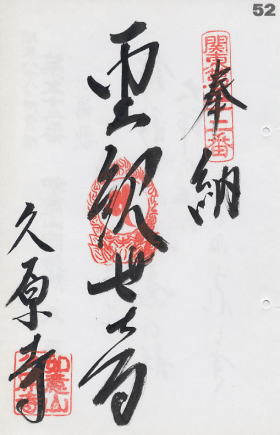 52
奉納
聖観世音
久原寺
如意山